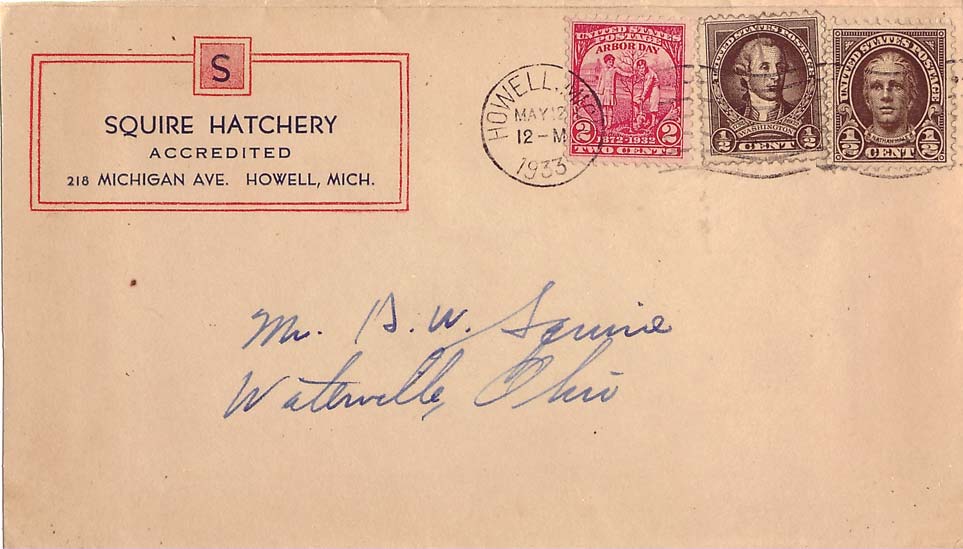 S
SQUIRE HATCHERY
ACCREDITED
218 MICHIGAN AVE. HOWELL, MICH.
HOWELL,
MAY 12
12-M
1933
UNITED STATES
POSTAGE
ARBOR DAY
2 2
1872-1932
TWO CENTS
UNITED STATES POSTAGE
WASHINGTON
1/2 CENT 1/2
UNITED STATES POSTAGE
NATHAN HALE
1/2 CENT 1/2
Mr. B. W. Squire
Waterville, Ohio